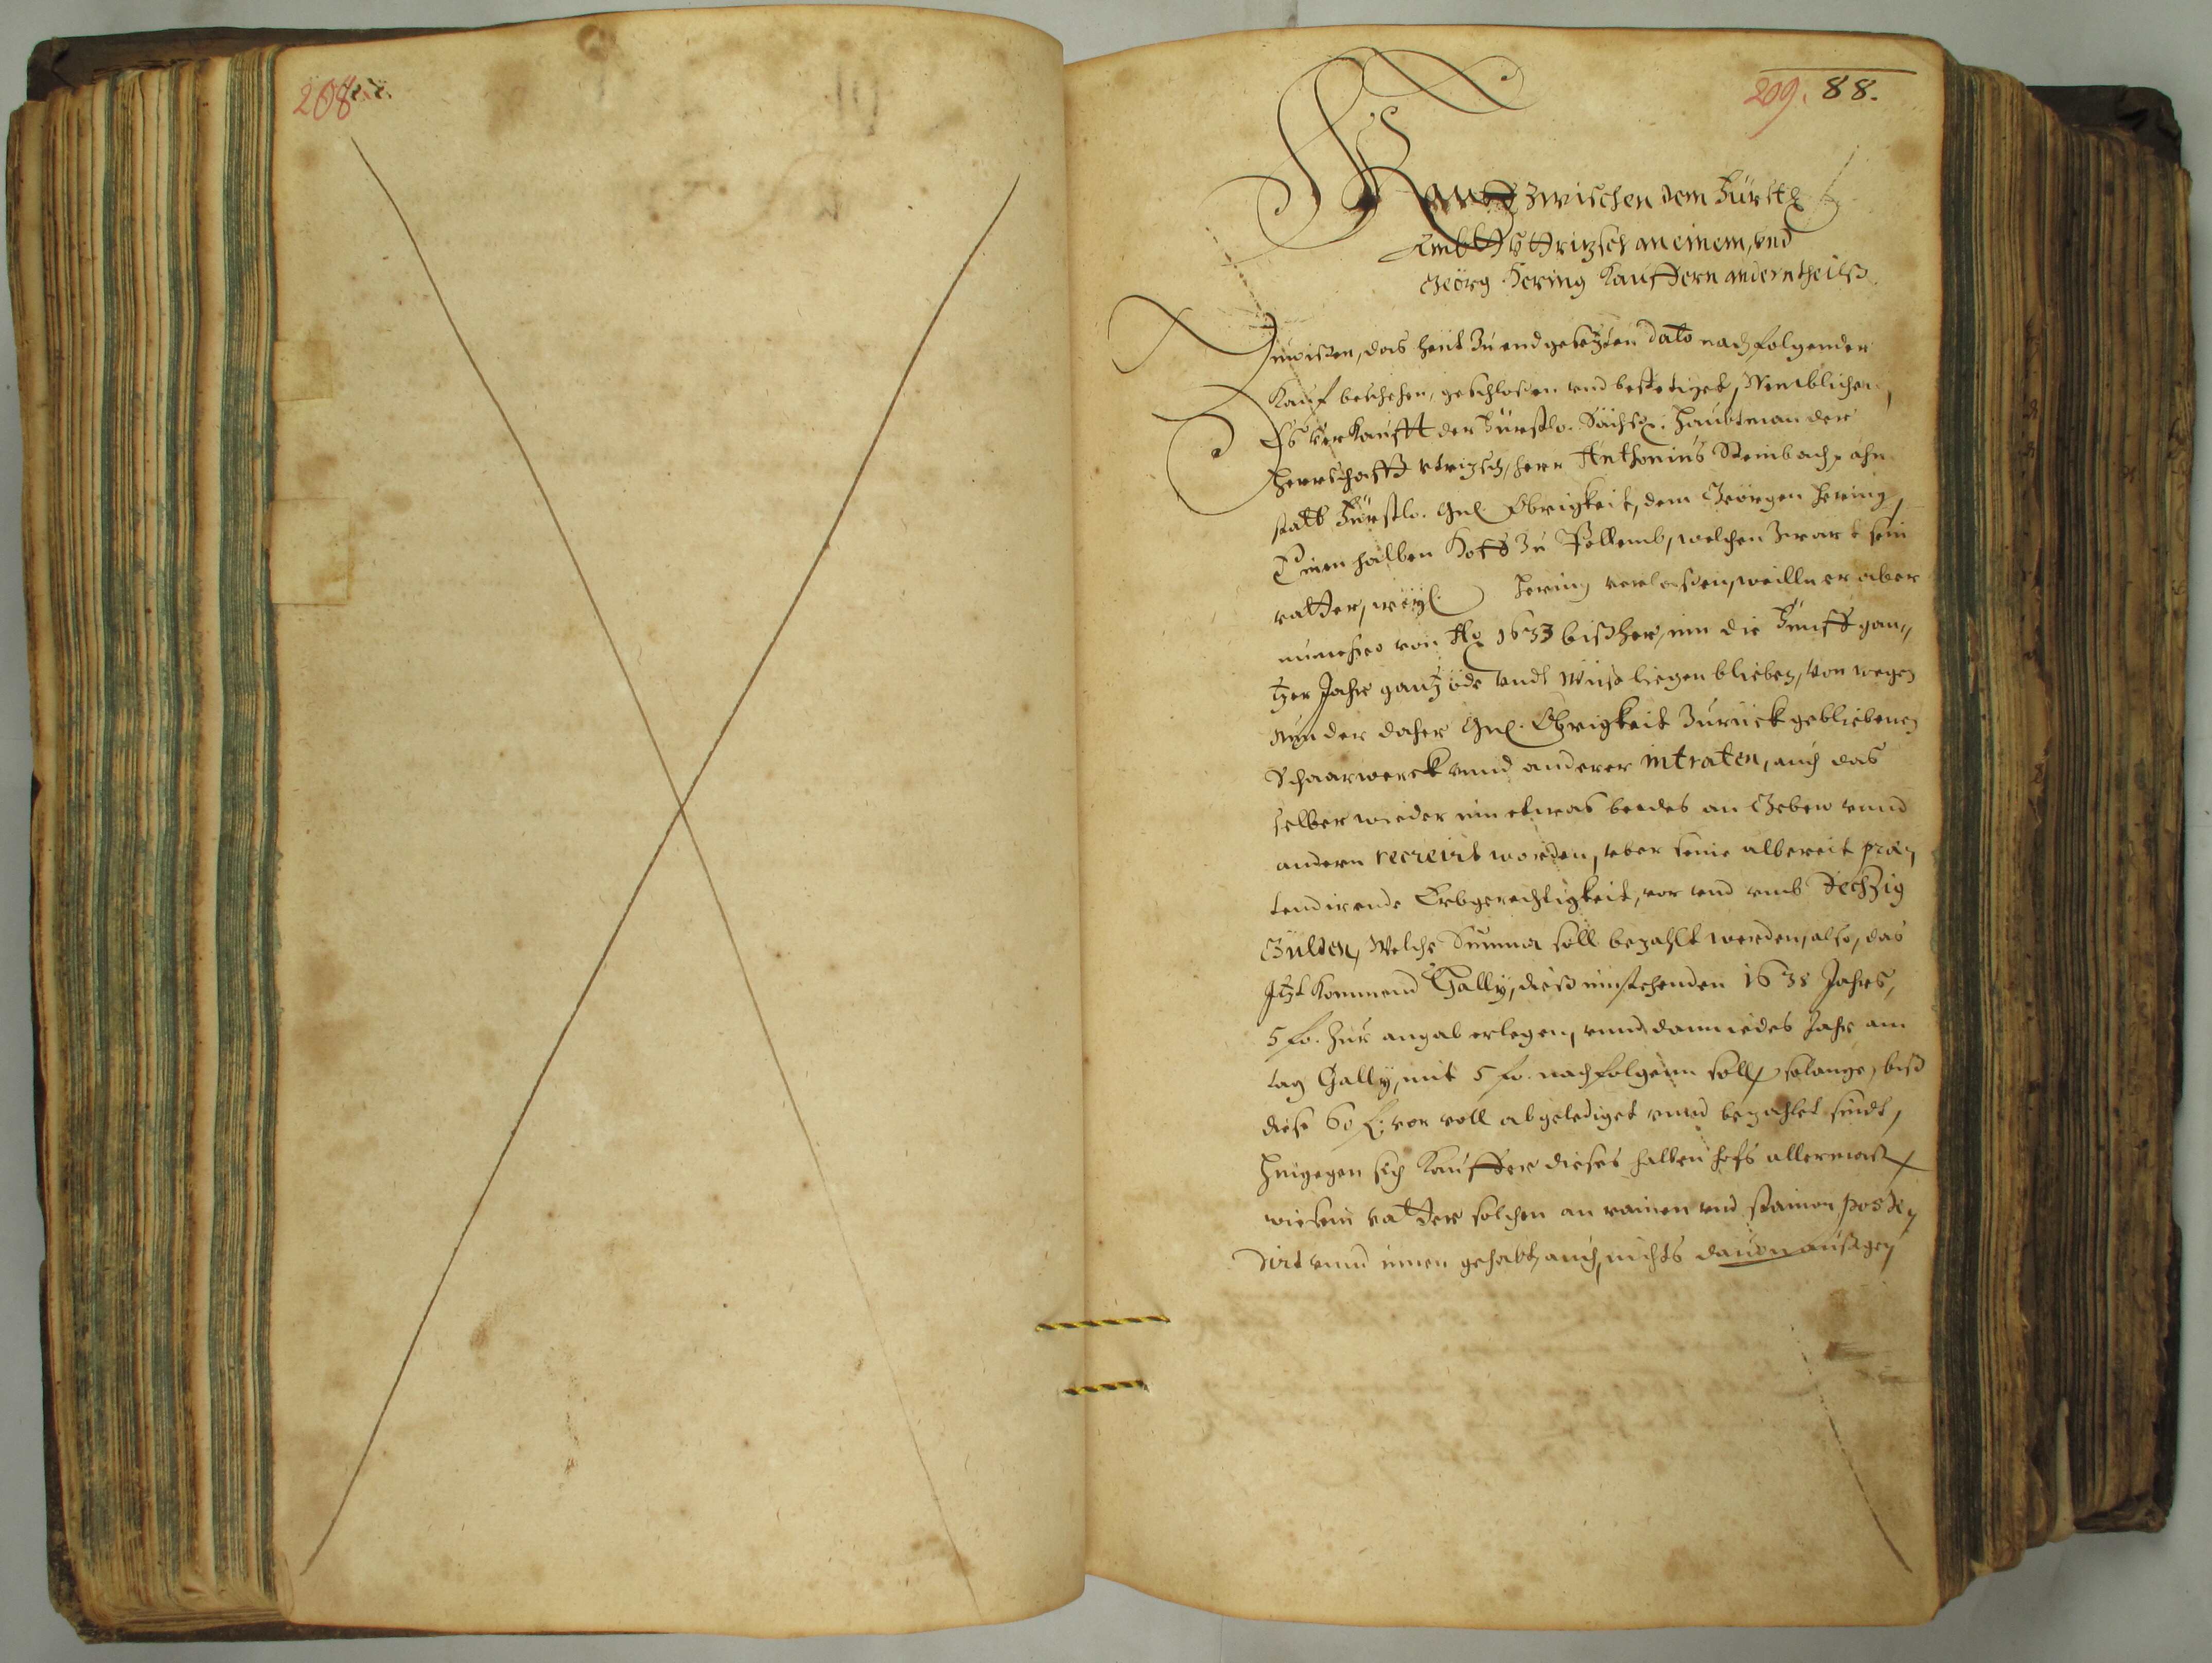 208
209. 88.
Kauff zwischen dem Fürstl.
Ambtt Vttrizsch an einem, vnd
Georg Hering Kauffern anderntheilß.
Zuwißen, das heut Zu endgesetzten dato nachfolgender
Kauf beschehen, geschloßen vnd bestetiget, Nemblichen,
Es Verkaufft der Fürstlo. Sächs. Haubtman der
Herrschafft Vtrizsch, herr Anthonius Steinbach, ahn
statt Fürstlo. Gnl. Obrigkeit, dem Geörgen Hering,
Einen halben Hoff Zu Pöllemb, welchen Zwart sein
vatter, weyl. Hering verlaßen, weilln er aber
nunmehro von Ao 1633 bißher, inn die Fünff gan,,
tzer Jahr gantz öde vndt Wüst liegen blieben, Von wegen
Nun der daher Gnl. Obrigkeit Zurück gebliebenen
Schaarwerck vnnd anderer intraten, auch das
selber wieder inn etwas beedes an Gebew vnnd
andern recreirt worden, vber seine albereit præ,,
tendirende Erbgerechtigkeit, vor vnd vmb Sechzig
Gulden, Welche Summa soll bezahlt werden, also, das
Jtzt Kommend Gally, dieß instehenden 1638 Jahrs,
5 fo. Zur angab erlegen, vnnd dann iedes Jahr am
tag Gally, mit 5 fo. nachfolgenn soll, solange, biß
diese 60 f. vor voll abgelediget vnnd bezahlet sindt,
Hingegen sich Kauffer dieses halben hofs allermaß
wie sein vatter solchen an rainen vnd stainen poste,,
dirt vnnd innen gehabt, auch nichts dauon außgen